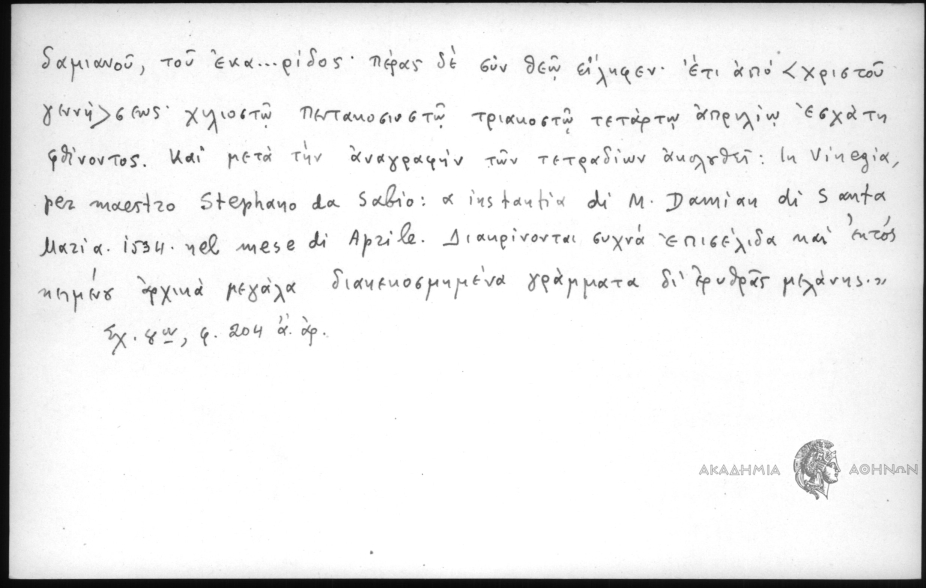 δαμιανοῦ, τοῦ ἐκα...ρίδος· πέρας δὲ σὺν θεῷ εἴληφεν· ἔτι ἀπό <χριστοῦ
γεννή>σεως· χιλιοστῷ πεντακοσιοστῷ τριακοστῷ τετάρτῳ ἀπριλίῳ ἐσχάτη
φθίνοντος. Καί μετά τήν ἀναγραφήν τῶν τετραδίων ἀκολυθεῖ: In Vinegia,
per maestro Stephano da Sabio: a instantia di M. Damian di Santa
Maria. 1534. nel mese di Aprile. Διακρίνονται συχνά ἐπισέλιδα καί ἐκτός
κειμένου ἀρχικά μεγάλα διακεκοσμημένα γράμματα δι' ἐρυθρᾶς μελάνης.»
Σχ. 8ον, φ. 204 ἄ. ἀρ.
ΑΚΑΔΗΜΙΑ ΑΘΗΝΩΝ